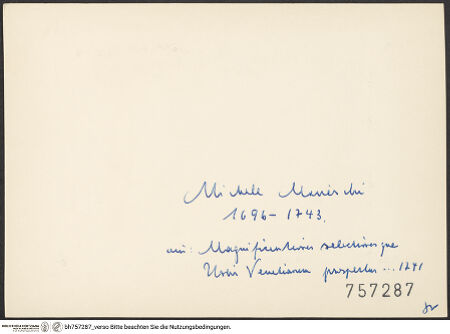 Michele Marieschi
1696-1743,
aus: Magnificentiores selectioresque
Urbis Venetiarum prospectus ... 1741
757287
bh757287_verso Bitte beachten Sie die Nutzungsbedingungen.